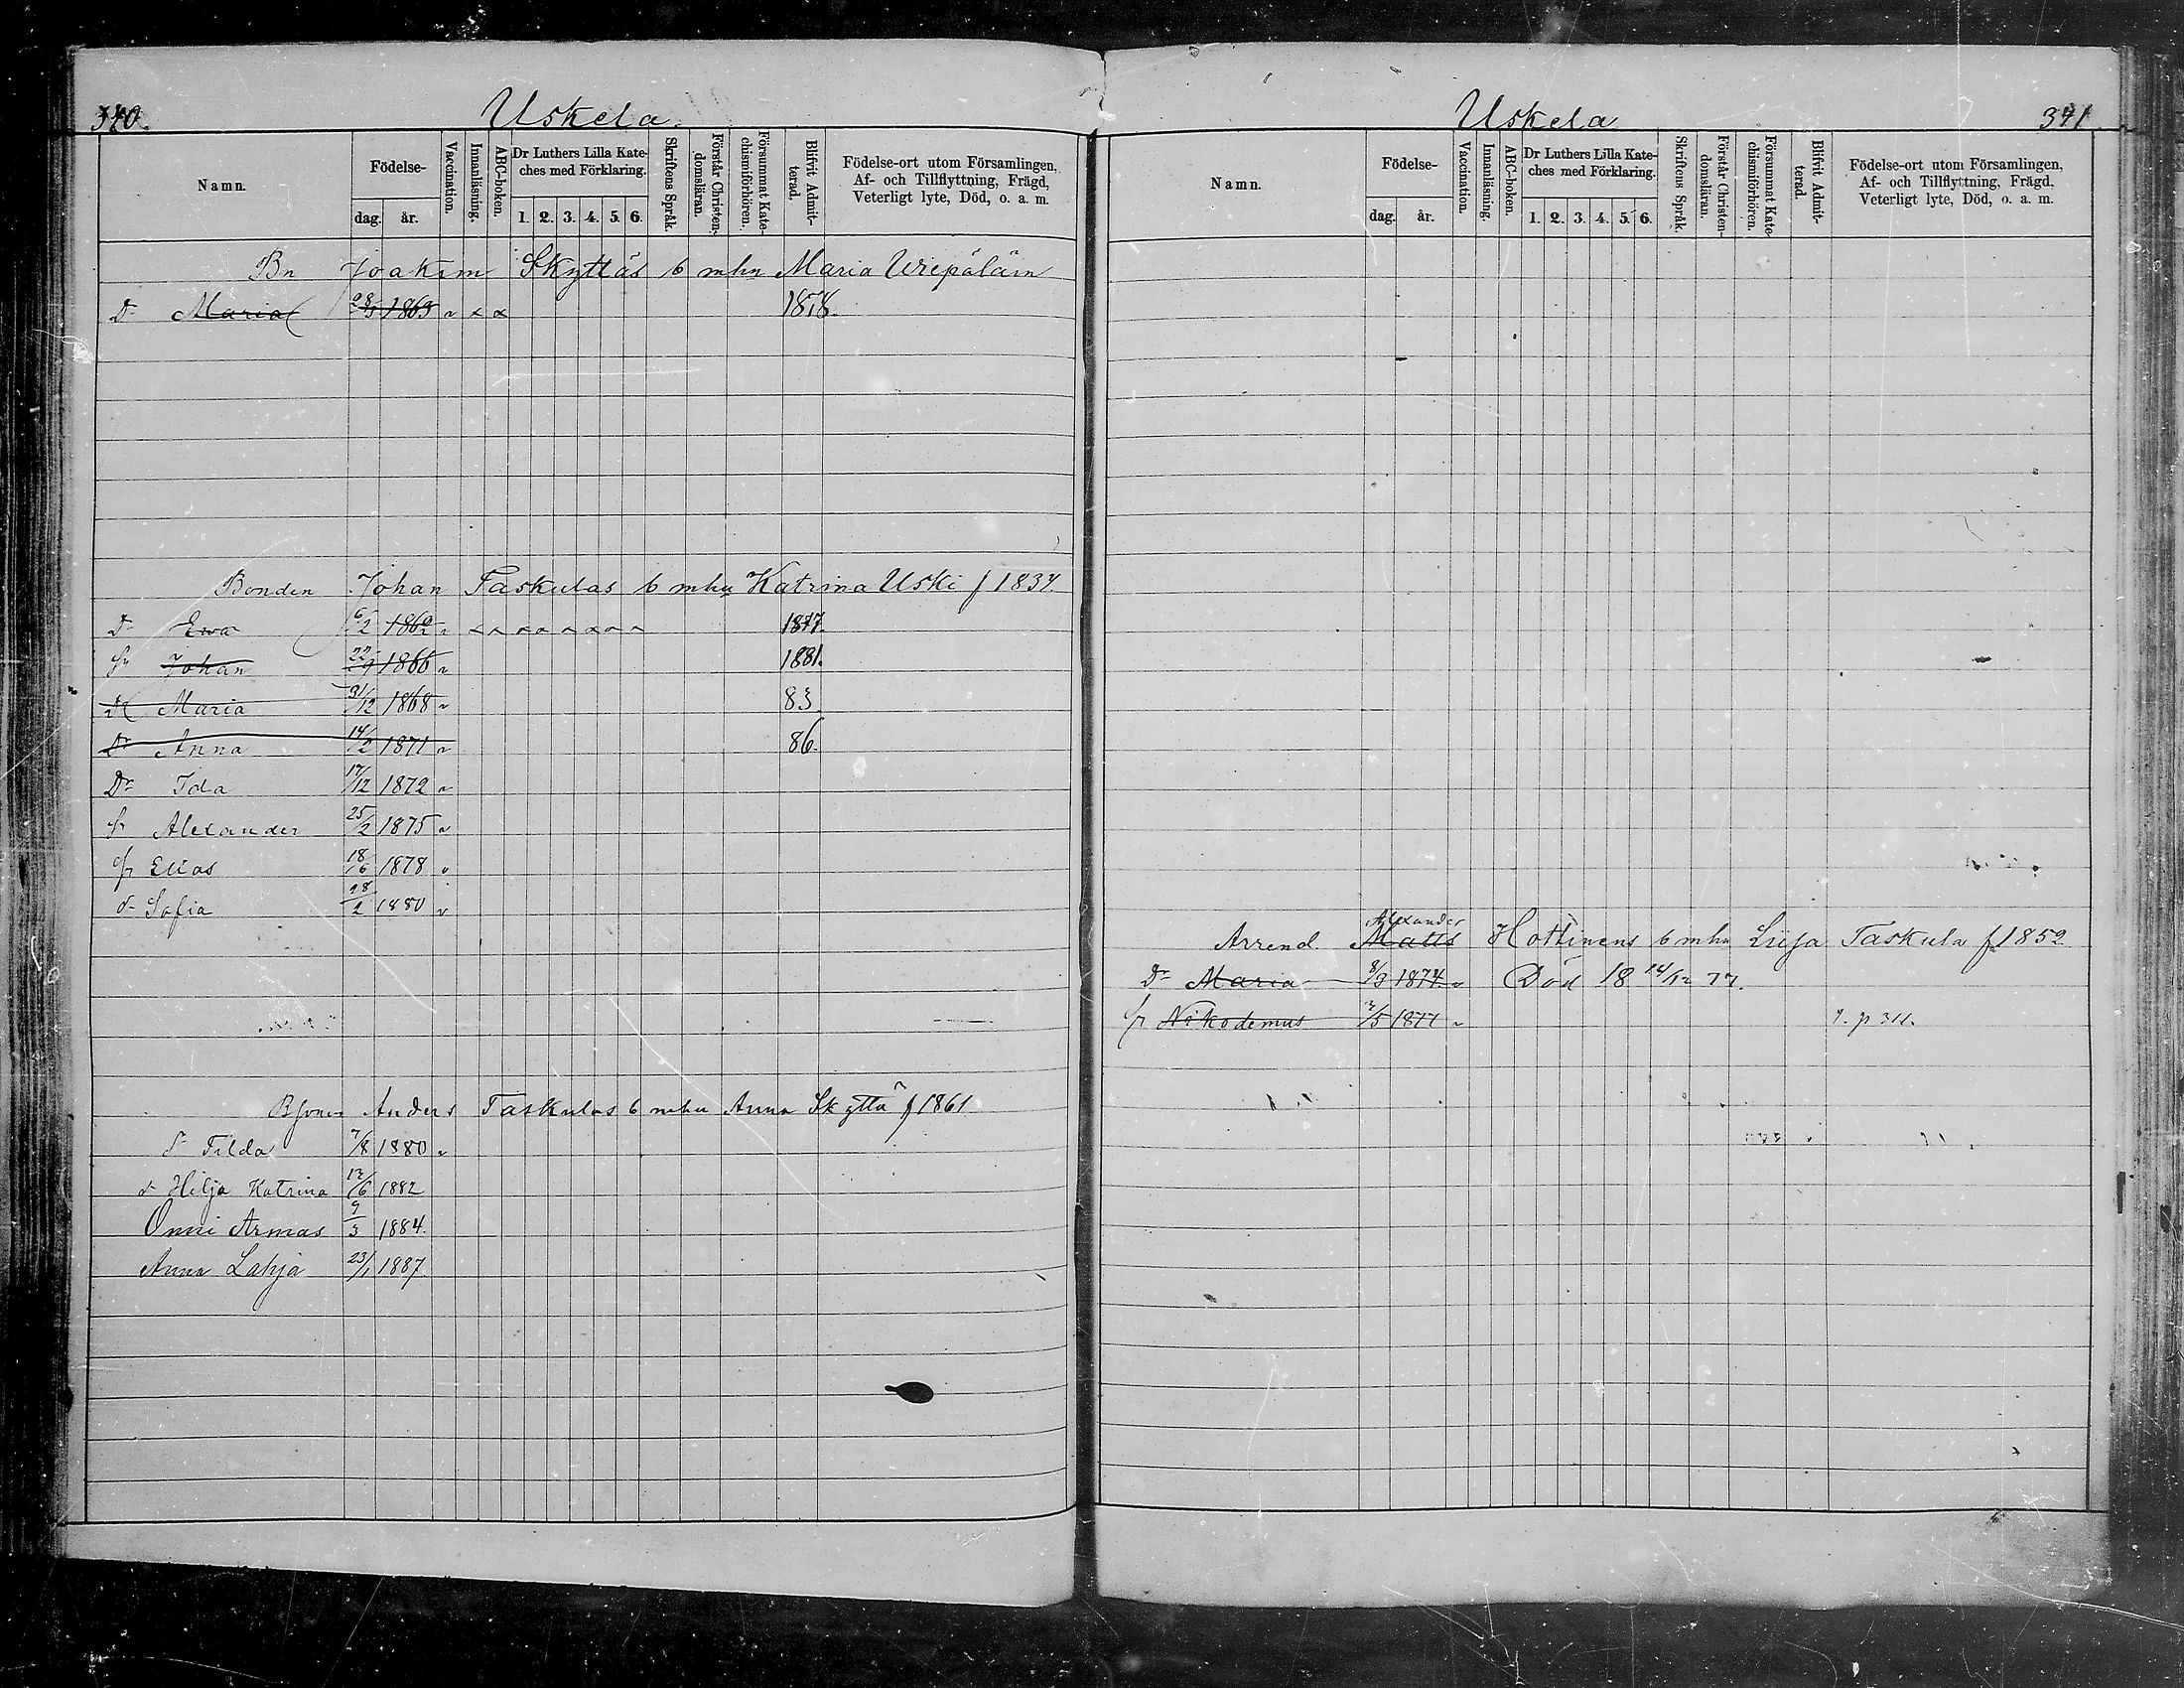 340.
Uskela.
Namn.
Födelse-
dag. år.
Vaccination.
Innanläsning.
ABC-boken.
Dr Luthers Lilla Kate-
ches med Förklaring.
1. 2. 3. 4. 5. 6.
Skriftens Språk.
Förstår Christen-
domsläran.
Försummat Kate-
chismiförhören.
Blifvit Admit-
terad.
Födelse-ort utom Församlingen,
Af- och Tillflyttning, Frägd,
Veterligt lyte, Död, o. a. m.
Bn Joakim Skyttäs b mhu Maria
Dr Maria 1863 1878.
Bonden Johan Taskulas b mhu Katrina Uski f 1834.
Dr Ewa 6/2 1862 1877.
Sn Johan 22/9 1866 1881.
Dr Maria 31/12 1868 83.
Dr Anna 14/2 1871 86.
Dr Ida 17/12 1872
Sn Alexander 25/2 1875
Sn Elias 18/6 1878
dr Sofia 18/2 1880
Anders Taskulas b mhu Anna Skyttä f 1861
dr Tilda 7/8 1880
dr Hilja Katrina 12/6 1882
Onni Armas 9/3 1884.
Anna Lahja 23/1 1887.
Uskela
341
Namn.
Födelse-
dag. år.
Vaccination.
Innanläsning.
ABC-boken.
Dr Luthers Lilla Kate-
ches med Förklaring.
1. 2. 3. 4. 5. 6.
Skriftens Språk.
Förstår Christen-
domsläran.
Försummat Kate-
chismiförhören.
Blifvit Admit-
terad.
Födelse-ort utom Församlingen,
Af- och Tillflyttning, Frägd,
Veterligt lyte, Död, o. a. m.
Alexander
Arrend. Matts Hottinens b mhu Liisa Taskula f 1852
Dr Maria 8/3 1874 Död 18 14/12 77.
Sn Nikodemus 1877 p 311.